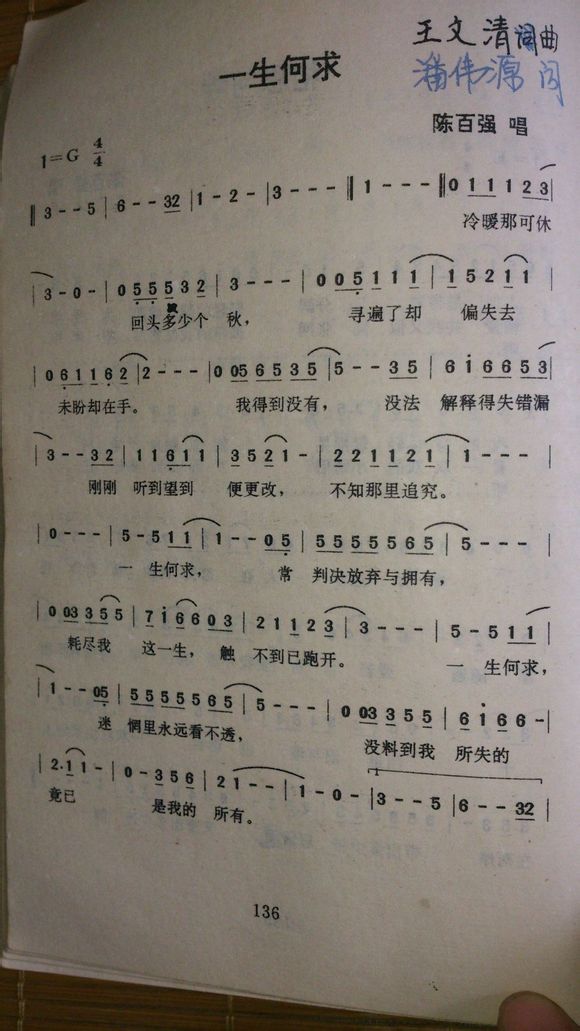 王文清词曲
潘伟源 词
一生何求
陈百强 唱
1=G 4/4
‖ 3 - - 5 | 6 - - 32 | 1 - 2 - | 3 - - - ‖ 1 - - - ‖ 0 1 1 1 2 3 |
冷暖那可休
| 3 - 0 - | 0 5 5 5 3 2 | 3 - - - | 0 0 5 1 1 1 | 1 5 2 1 1 |
回头多少个 秋， 寻遍了却 偏失去
| 0 6 1 1 6 2 | 2 - - - | 0 05 6 5 3 5 | 5 - - 35 | 6 i 6 6 5 3 |
未盼却在手。 我得到没有， 没法 解释得失错漏
| 3 - - 32 | 1 1 6 1 1 | 3 5 2 1 - | 2 2 1 1 2 1 | 1 - - - |
刚刚 听到望到 便更改， 不知那里追究。
| 0 - - - | 5 - 5 1 1 | 1 - - 0 5 | 5 5 5 5 5 6 5 | 5 - - - |
一 生何求， 常 判决放弃与拥有，
| 0 03 3 5 5 | 7 i 6 6 0 3 | 2 1 1 2 3 | 3 - - - | 5 - 5 1 1 |
耗尽我 这一生， 触 不到已跑开。 一 生何求，
| 1 - - 05 | 5 5 5 5 5 6 5 | 5 - - - | 0 03 3 5 5 | 6 i 6 6 - |
迷 惘里永远看不透， 没料到我 所失的
| 2·1 1 - | 0 - 3 5 6 | 2 1 - - | 1 - 0 - | 3 - - 5 | 6 - - 32 |
竟已 是我的 所有。
136